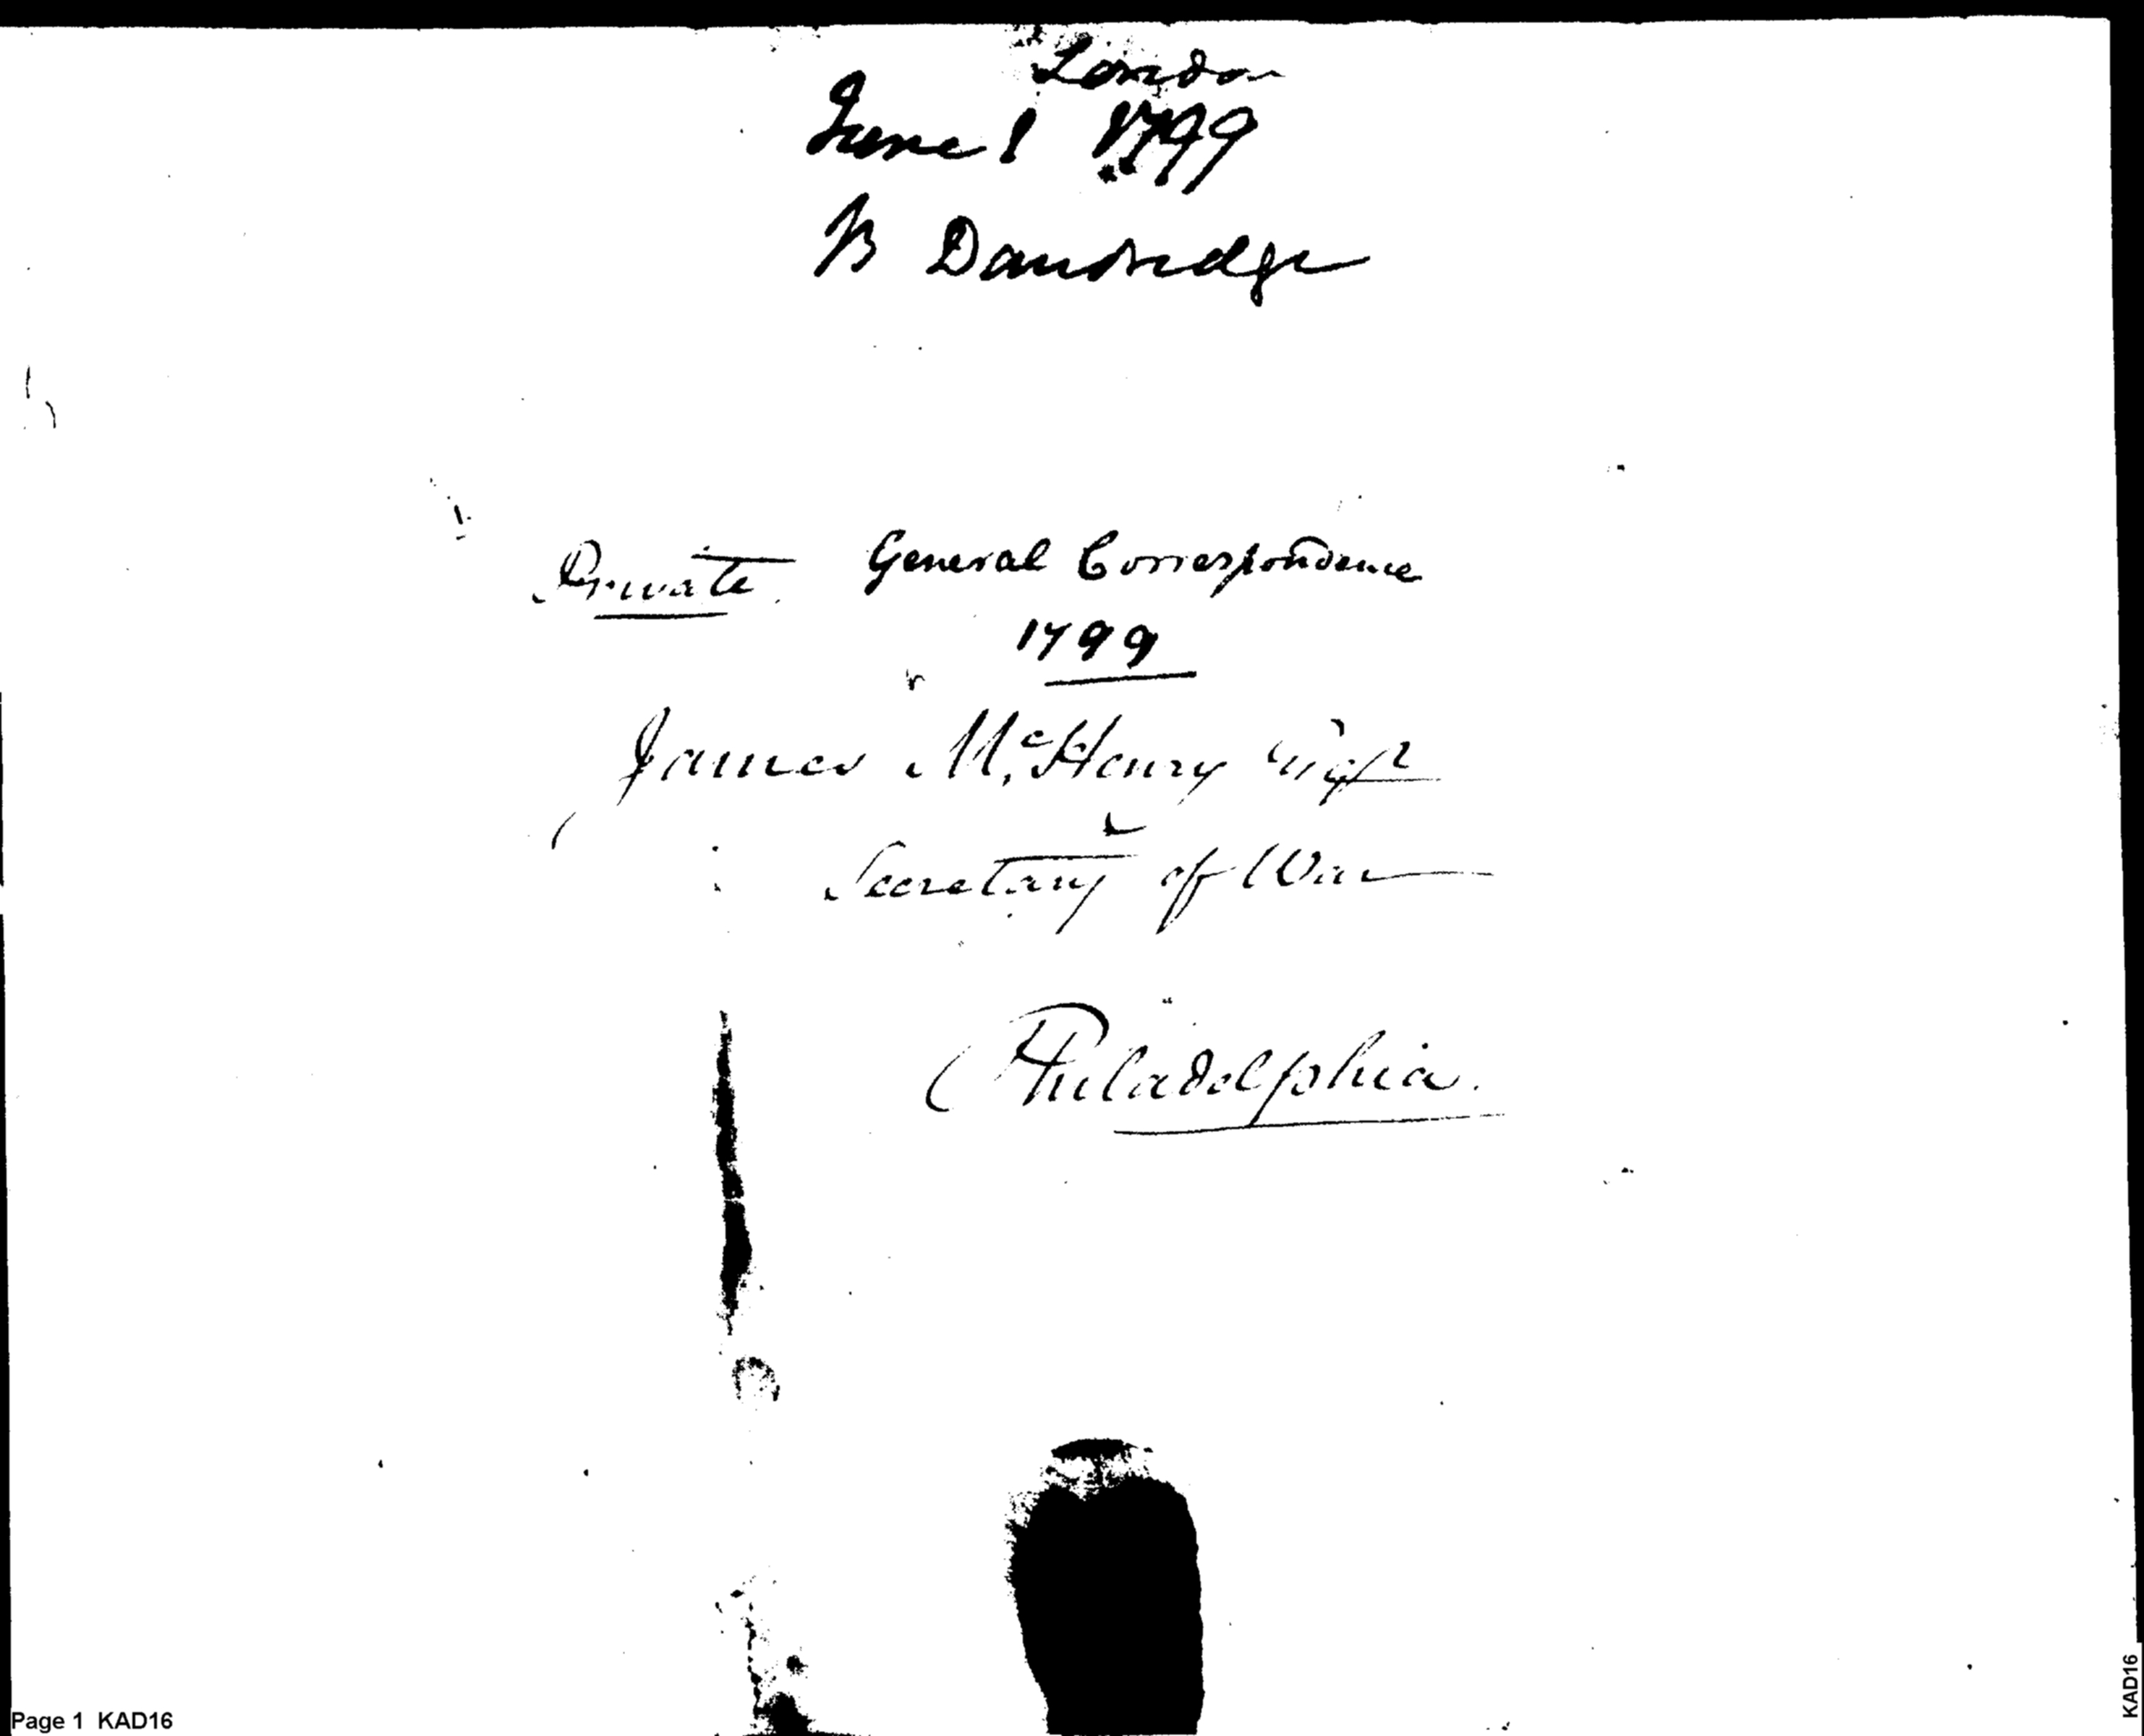 London
June 1 1799
B Dandridge
Private General Correspondence
1799
James McHenry Esqr
Secretary of War
Philadelphia.
Page 1 KAD16
KAD16